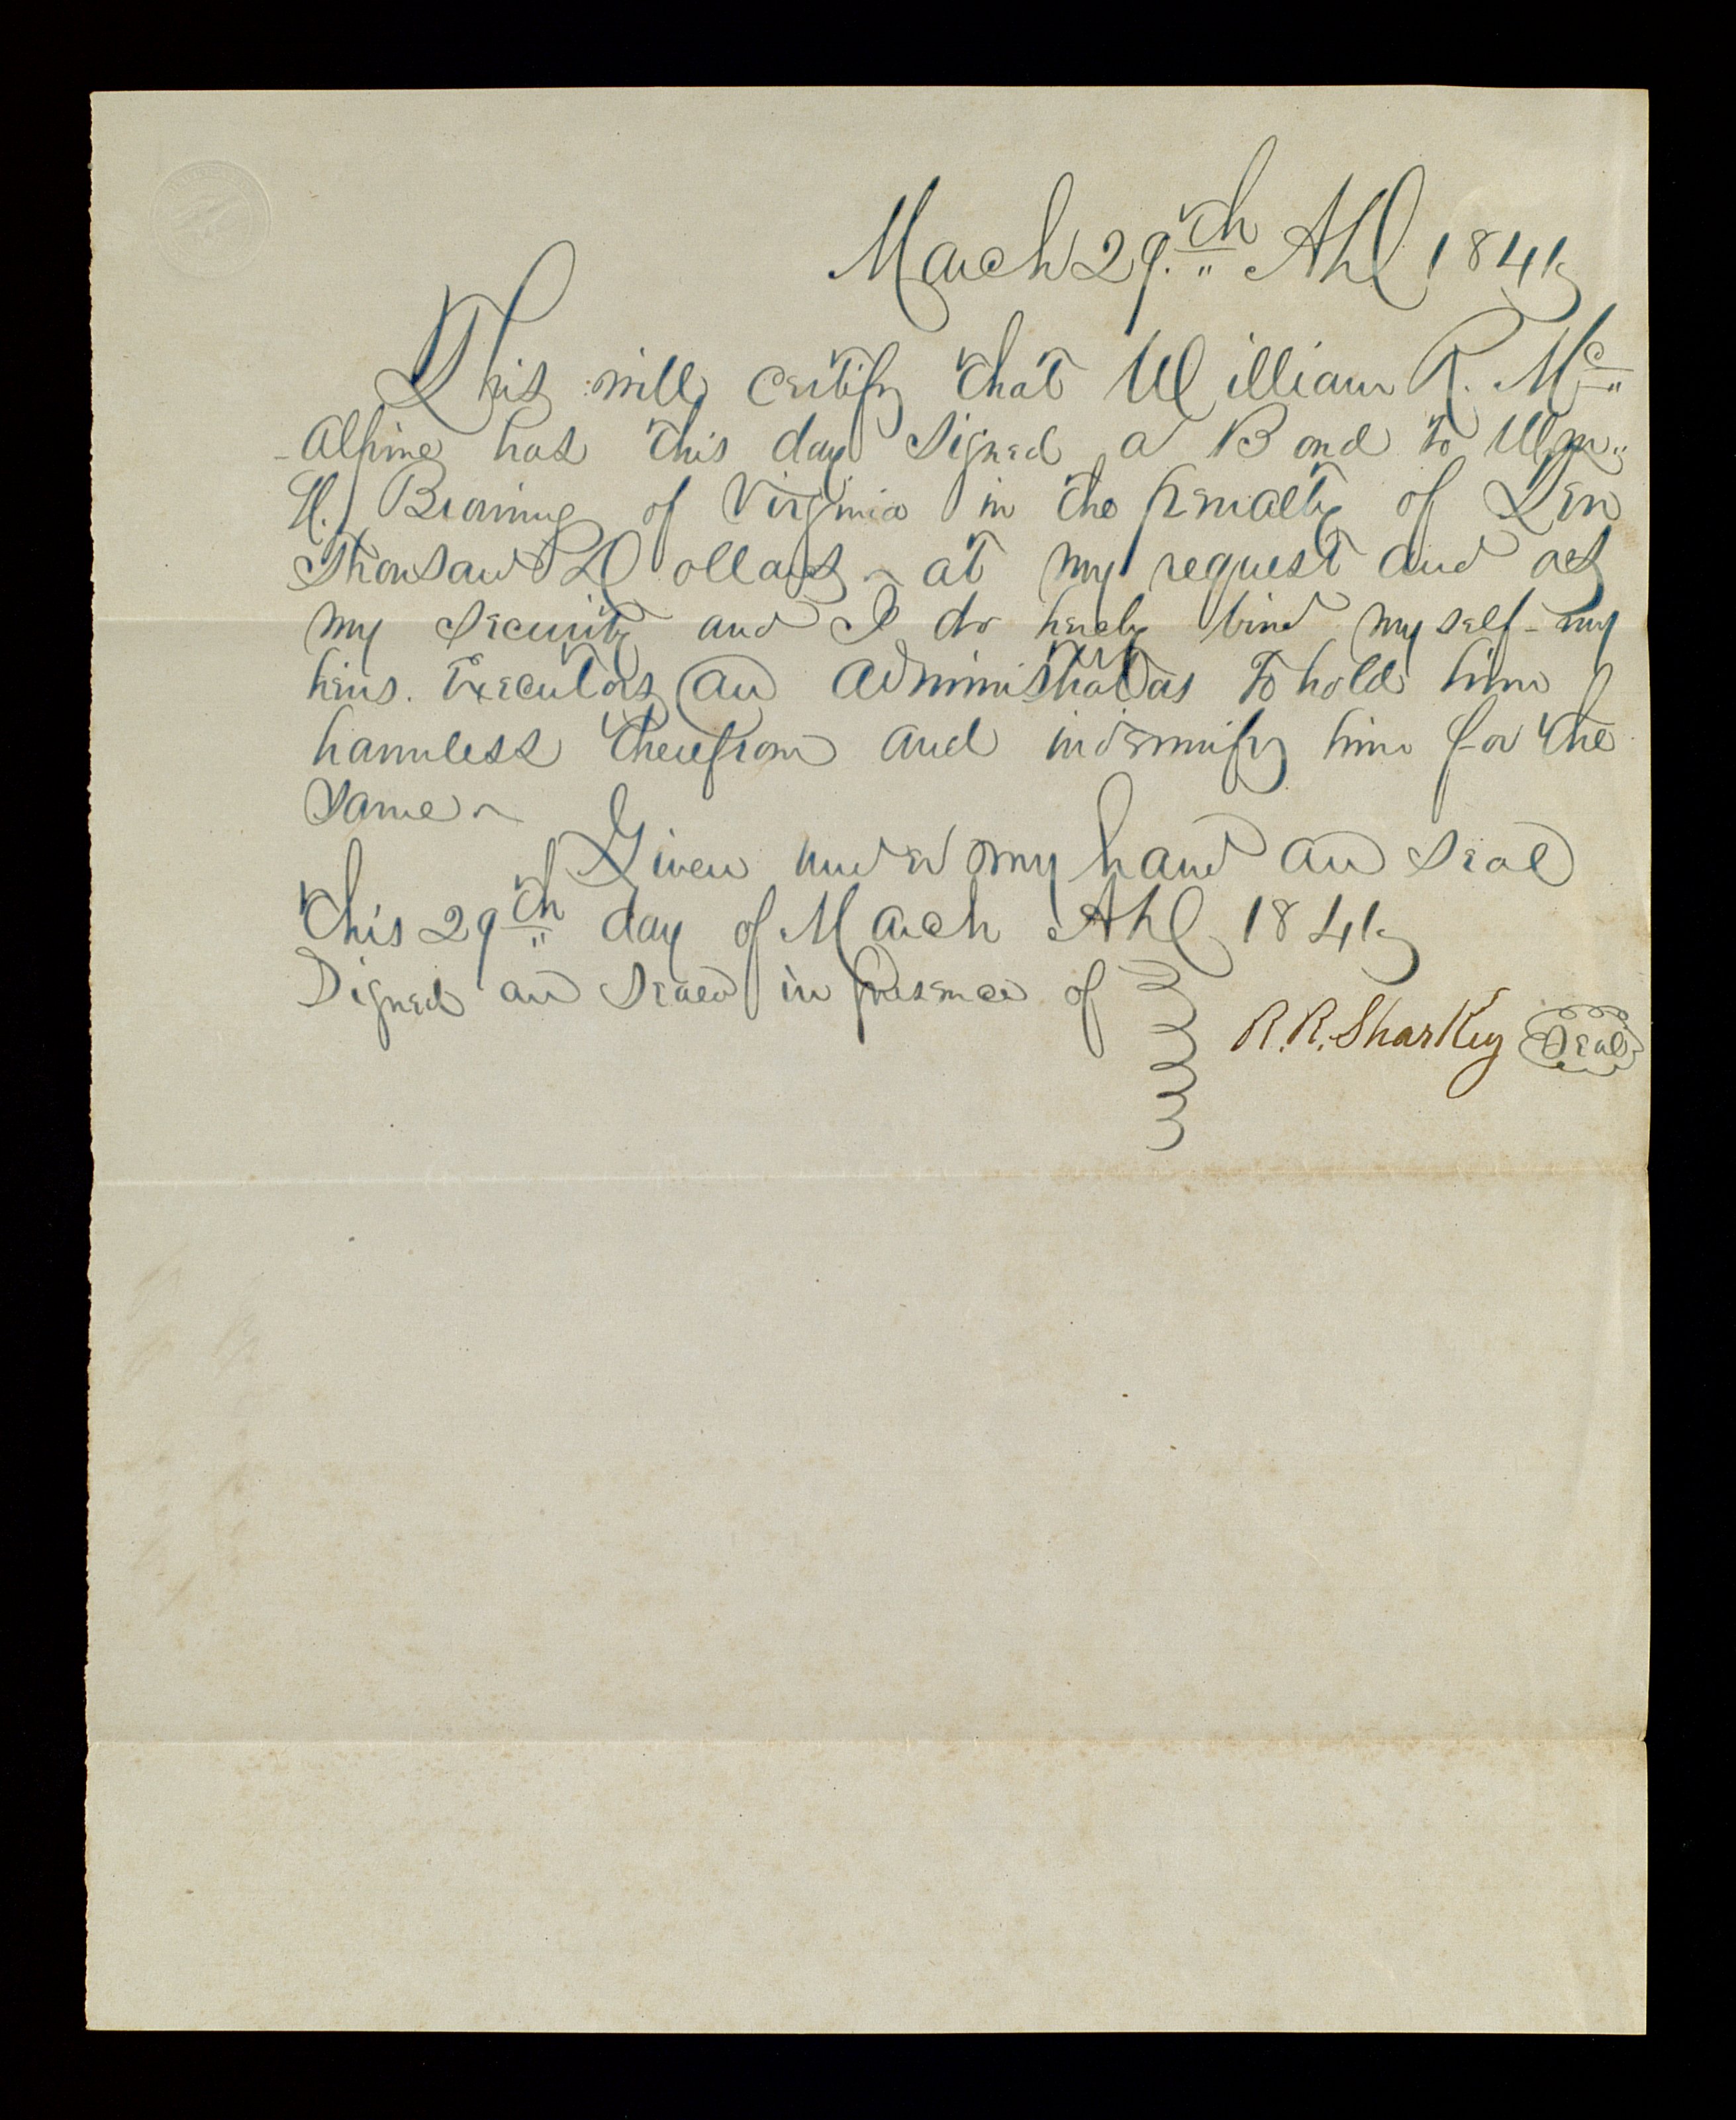 March 29.th AD 1841
This will certify that William R. Mc
-Alpine has this day signed a Bond to Wm
H. of Virginia in the penalty of Ten
Thousand Dollars - at my request and as
my security and I do hereby bind my self - my
heirs. Executors and Administrators to hold him
harmless therefrom and indemnify him for the
same -
Given under my hand and seal
this 29th day of March AD 1841
Signed and Sealed in presence of
R. R. Sharkey Seal